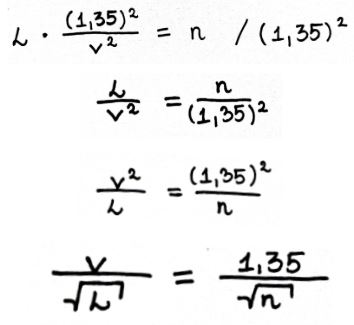 L · (1,35)² / v² = n / (1,35)²
L / v² = n / (1,35)²
v² / L = (1,35)² / n
v / √L = 1,35 / √n